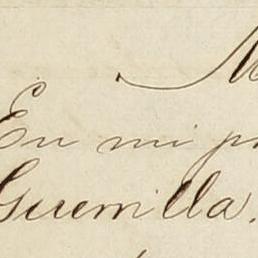 En mi
Guerrilla.